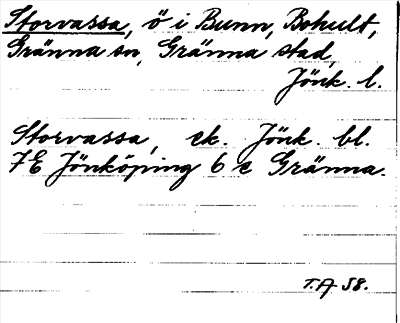 Storvassa, ö i Bunn, Bohult,
Gränna sn, Gränna stad,
Jönk. l.
Storvassa, ek. Jönk. bl.
7E Jönköping 6 e Gränna.
T.A 58.